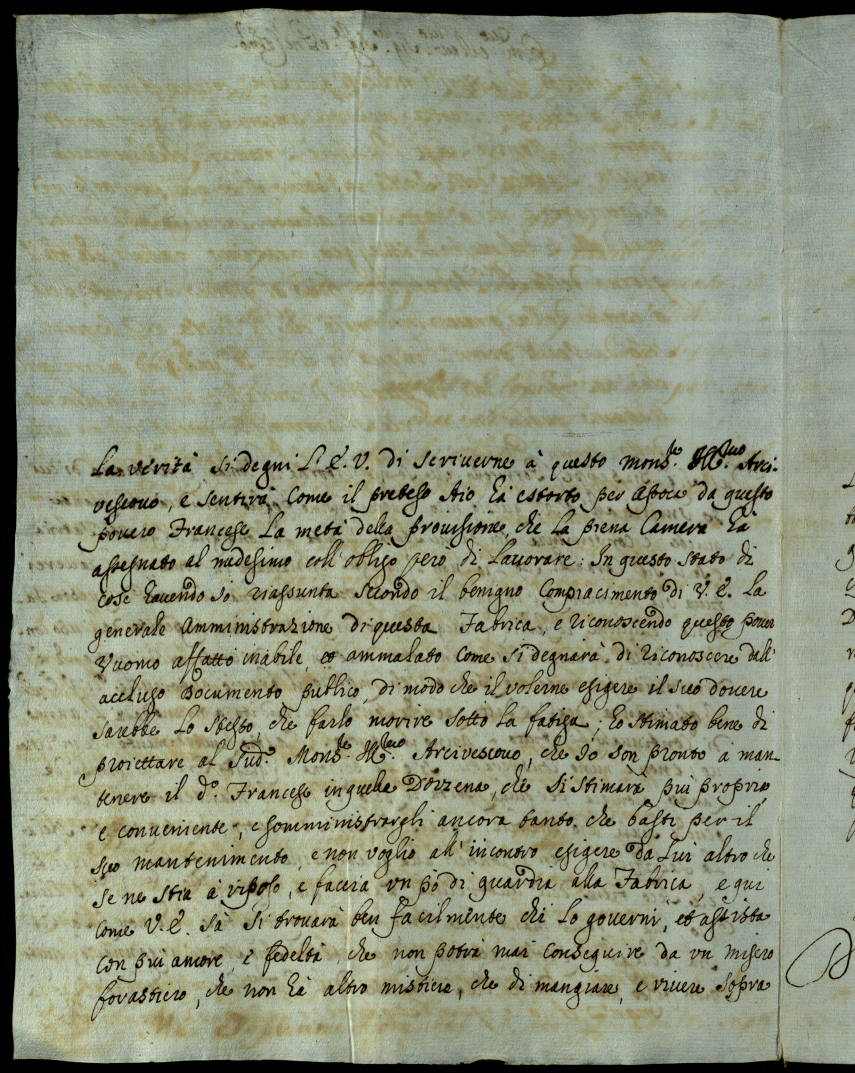 La verità si degni L'E. V. di scriuerne à questo Mons.re Ill.mo Arci-
uescouo, e sentirà come il preteso Aio hà estorto per Apoca da questo
pouero Francese la metà della prouisione, che la piena Camera hà
assegnato al medesimo coll'obligo però di lauorare: In questo stato di
cose hauendo io riassunta secondo il benigno compiacimento di V. E. la
generale Amministrazione di questa Fabrica, e riconoscendo questo pouer
Vuomo affatto inabile, et ammalato come si degnarà di riconoscere dall'
accluso Documento publico, di modo che il volerne esigere il suo douere
sarebbe lo stesso, che farlo morire sotto la fatiga; hò stimato bene di
proiettare al Sud.o Mons.re Ill.mo Arciuescouo, che Io son pronto à man-
tenere il d.o Francese in quella Dozzena, che si stimarà più propria,
e conueniente, e somministrargli ancora tanto che basti per il
suo mantenimento, e non voglio all'incontro esigere da Lui altro che
se ne stia à riposo, e faccia vn pò di guardia alla Fabrica, e qui
come V. E. sà si trouarà ben facilmente chi lo gouerni, et assista
con più amore, e fedeltà, che non potrà mai conseguire da vn misero
forastiero, che non hà altro mistiere, che di mangiare, e viuere sopra